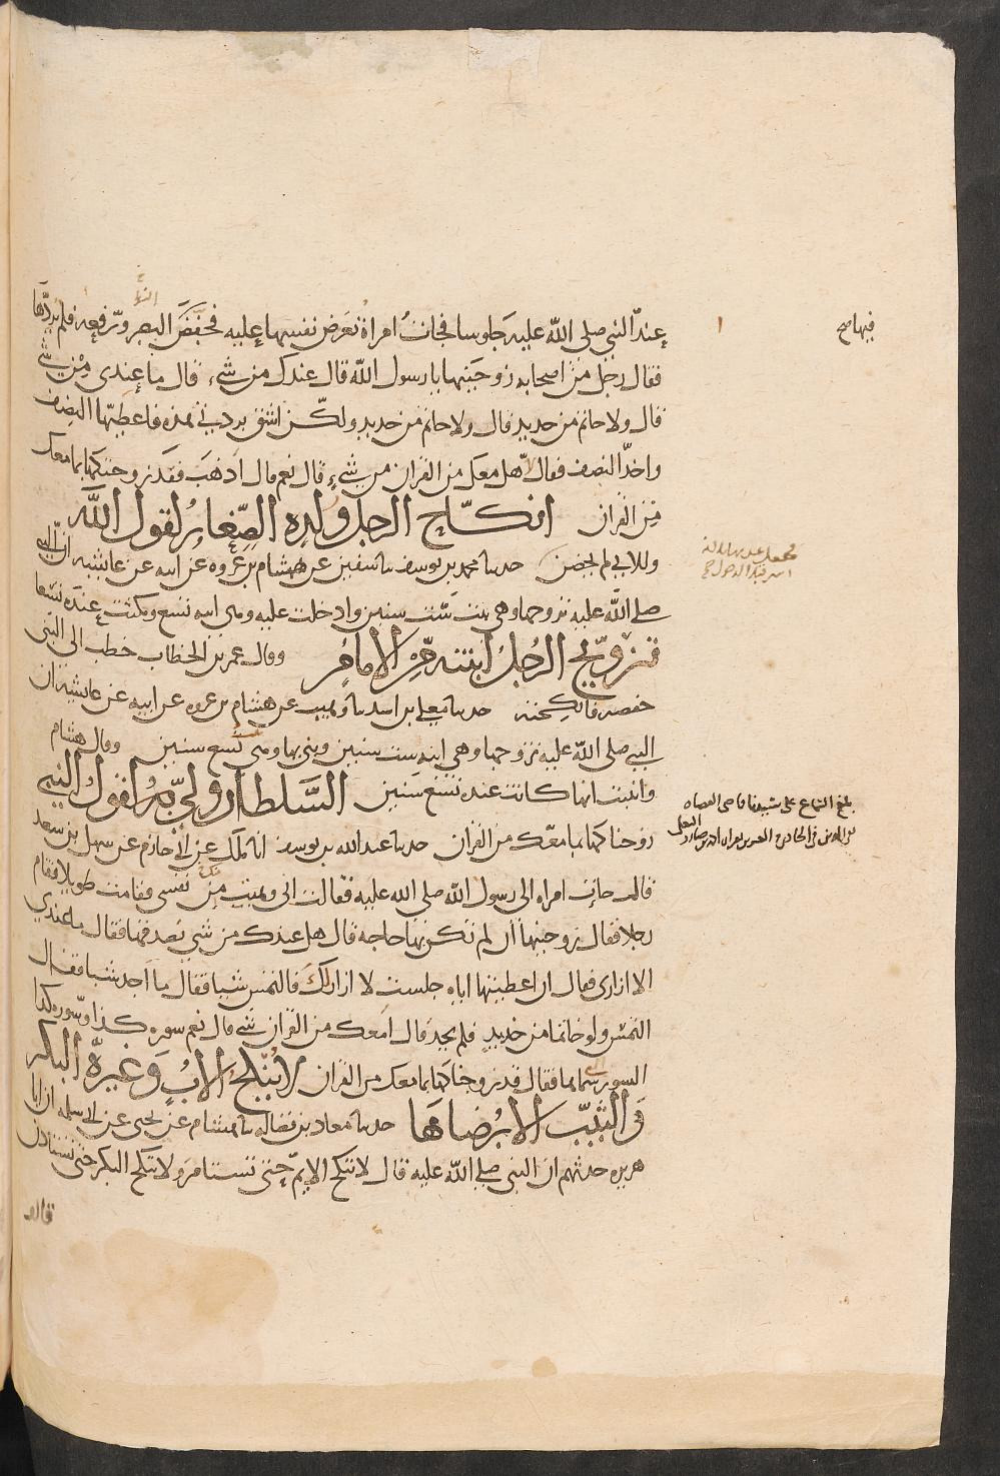 عند النبي صلى الله عليه جلوسا فجاءت امراة تعرض نفسها عليه فخفض البصر ورفعه فلم يردها
فقال رجل من اصحابه زوجنيها يا رسول الله قال عندك من شيء قال ما عندي من شي
قال ولا خاتم من حديد قال ولا خاتم من حديد ولكن اشق بردتي هذه فاعطيها النصف
واخذ النصف فقال لا هل معك من القران من شيء قال نعم قال اذهب فقد زوجتكها بما معك
من القران انكاح الرجل ولده الصغار لقول الله
واللاي لم يحضن حدثنا محمد بن يوسف نا سفين عن هشام بن عروه عن ابيه عن عايشه ان النبي
صلى الله عليه تزوجها وهي بنت ست سنين وادخلت عليه وهي ابنه تسع ومكثت عنده تسعا
تزويج الرجل ابنته من الامام وقال عمر بن الخطاب خطب الى النبي
حفصه فانكحته حدثنا معلى بن اسد نا وهيب عن هشام بن عروه عن ابيه عن عايشه ان
النبي صلى الله عليه تزوجها وهي ابنه ست سنين وبنى بها وهي تسع سنين وقال هشام
وانبئت انها كانت عنده تسع سنين السلطان ولي بقول النبي
زوجناكها بما معك من القران حدثنا عبد الله بن يوسف انا ملك عن ابي حازم عن سهل بن سعد
قال جات امراه الى رسول الله صلى الله عليه فقالت اني وهبت من نفسي فقامت طويلا فقام
رجلا فقال زوجنيها ان لم تكن بها حاجه قال هل عندك من شي تصدقها فقال ما عندي
الا ازاري فقال ان اعطيتها اياه جلست لا ازار لك فالتمس شيا فقال ما اجد شيا فقال
التمس ولو خاتما من حديد فلم يجد قال امعك من القران شي قال نعم سوره كذا وسوره كذا
لسور سماها فقال قد زوجناكها بما معك من القران لا ينكح الاب وغيره البكر
والثيب الا برضاها حدثنا معاذ بن فضاله نا هشام عن يحيى عن ابي سلمه ان ابا
هريره حدثهم ان النبي صلى الله عليه قال لا تنكح الايم حتى تستامر ولا تنكح البكر حتى تستاذن
قالو
فيها صح